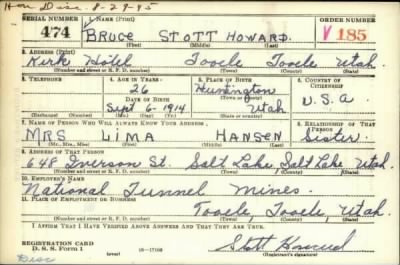 Hon Disc. 8-29-45
SERIAL NUMBER 1. NAME (Print) ORDER NUMBER
474 BRUCE STOTT HOWARD. V 185
(First) (Middle) (Last)
2. ADDRESS (Print)
Kirk Hotel Tooele Tooele Utah.
(Number and street or R. F. D. number) (Town) (County) (State)
3. TELEPHONE 4. AGE IN YEARS 5. PLACE OF BIRTH 6. COUNTRY OF CITIZENSHIP
26 Huntington
DATE OF BIRTH (Town or county)
Sept 6- 1914 Utah U.S.A
(Exchange) (No.) (Mo.) (Day) (Yr.) (State or country)
7. NAME OF PERSON WHO WILL ALWAYS KNOW YOUR ADDRESS 8. RELATIONSHIP OF THAT PERSON
MRS LIMA HANSEN Sister.
(Mr., Mrs., Miss) (First) (Middle) (Last)
9. ADDRESS OF THAT PERSON
648 Iverson St. Salt Lake, Salt Lake Utah.
(Number and street or R. F. D. number) (Town) (County) (State)
10. EMPLOYER'S NAME
National Tunnel Mines.
11. PLACE OF EMPLOYMENT OR BUSINESS
Tooele, Tooele, Utah.
(Number and street or R. F. D. number) (Town) (County) (State)
I AFFIRM THAT I HAVE VERIFIED ABOVE ANSWERS AND THAT THEY ARE TRUE.
REGISTRATION CARD
D. S. S. Form 1 16-17105 Stott Howard
(Registrant's signature)
Disc